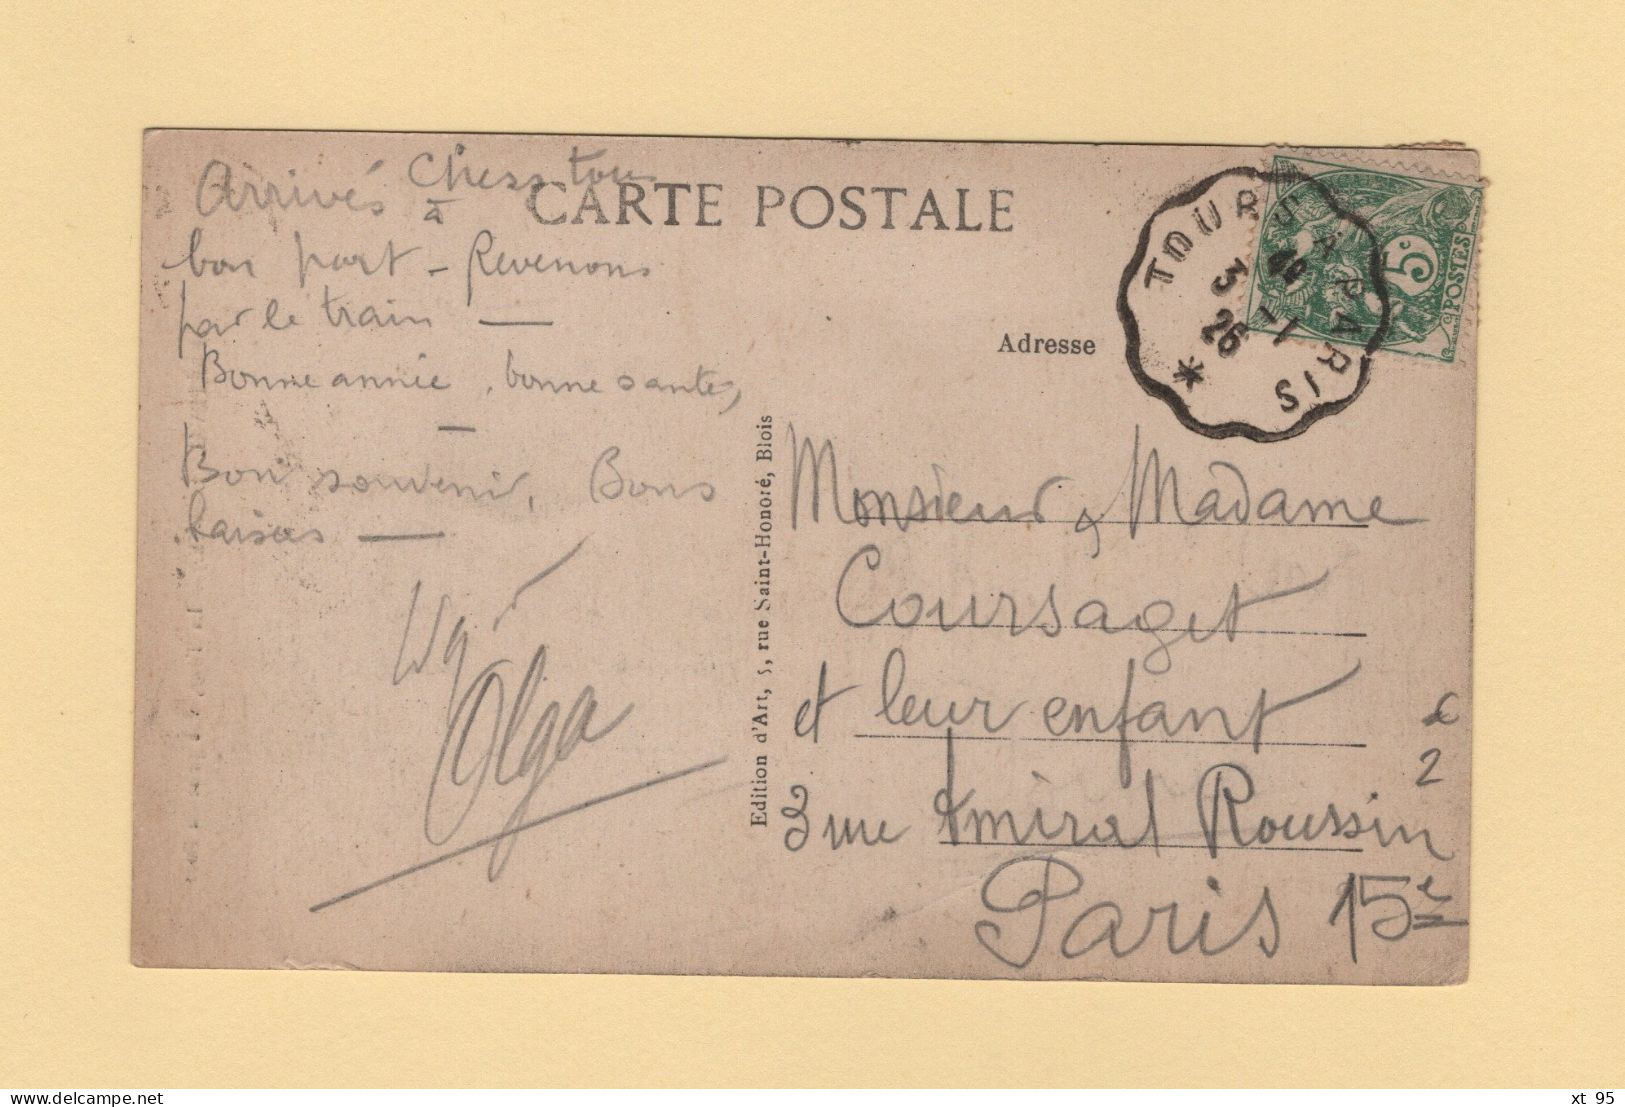 CARTE POSTALE
Arrivés à
bon port - Revenons
par le train —
Bonne année, bonne santé,
—
Bon souvenir, Bons
baisers —
Olga
Edition d'Art, 5, rue Saint-Honoré, Blois
TOURS A PARIS
3 -1
26
5c
POSTES
Adresse
Monsieur & Madame
Coursaget
et leur enfant
3 rue Amiral Roussin
Paris 15e
2
delcampe.net
xt 95